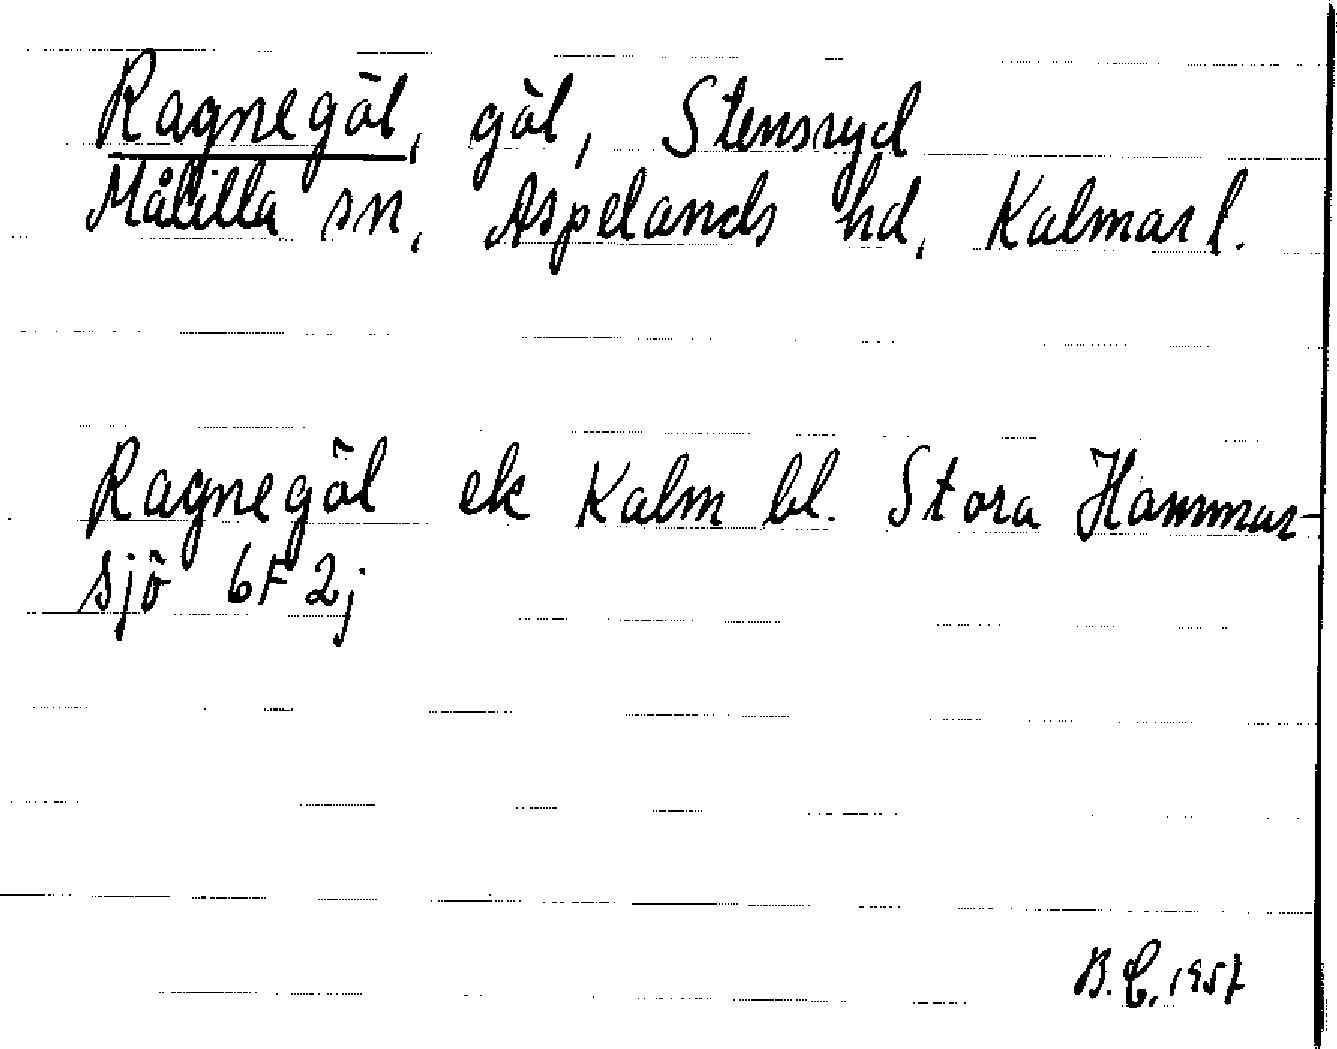 Ragnegöl, göl, Stensryd
Målilla sn, Aspelands hd, Kalmar l.
Ragnegöl ek Kalm bl. Stora Hammar-
sjö 6F 2j
B. E, 1957